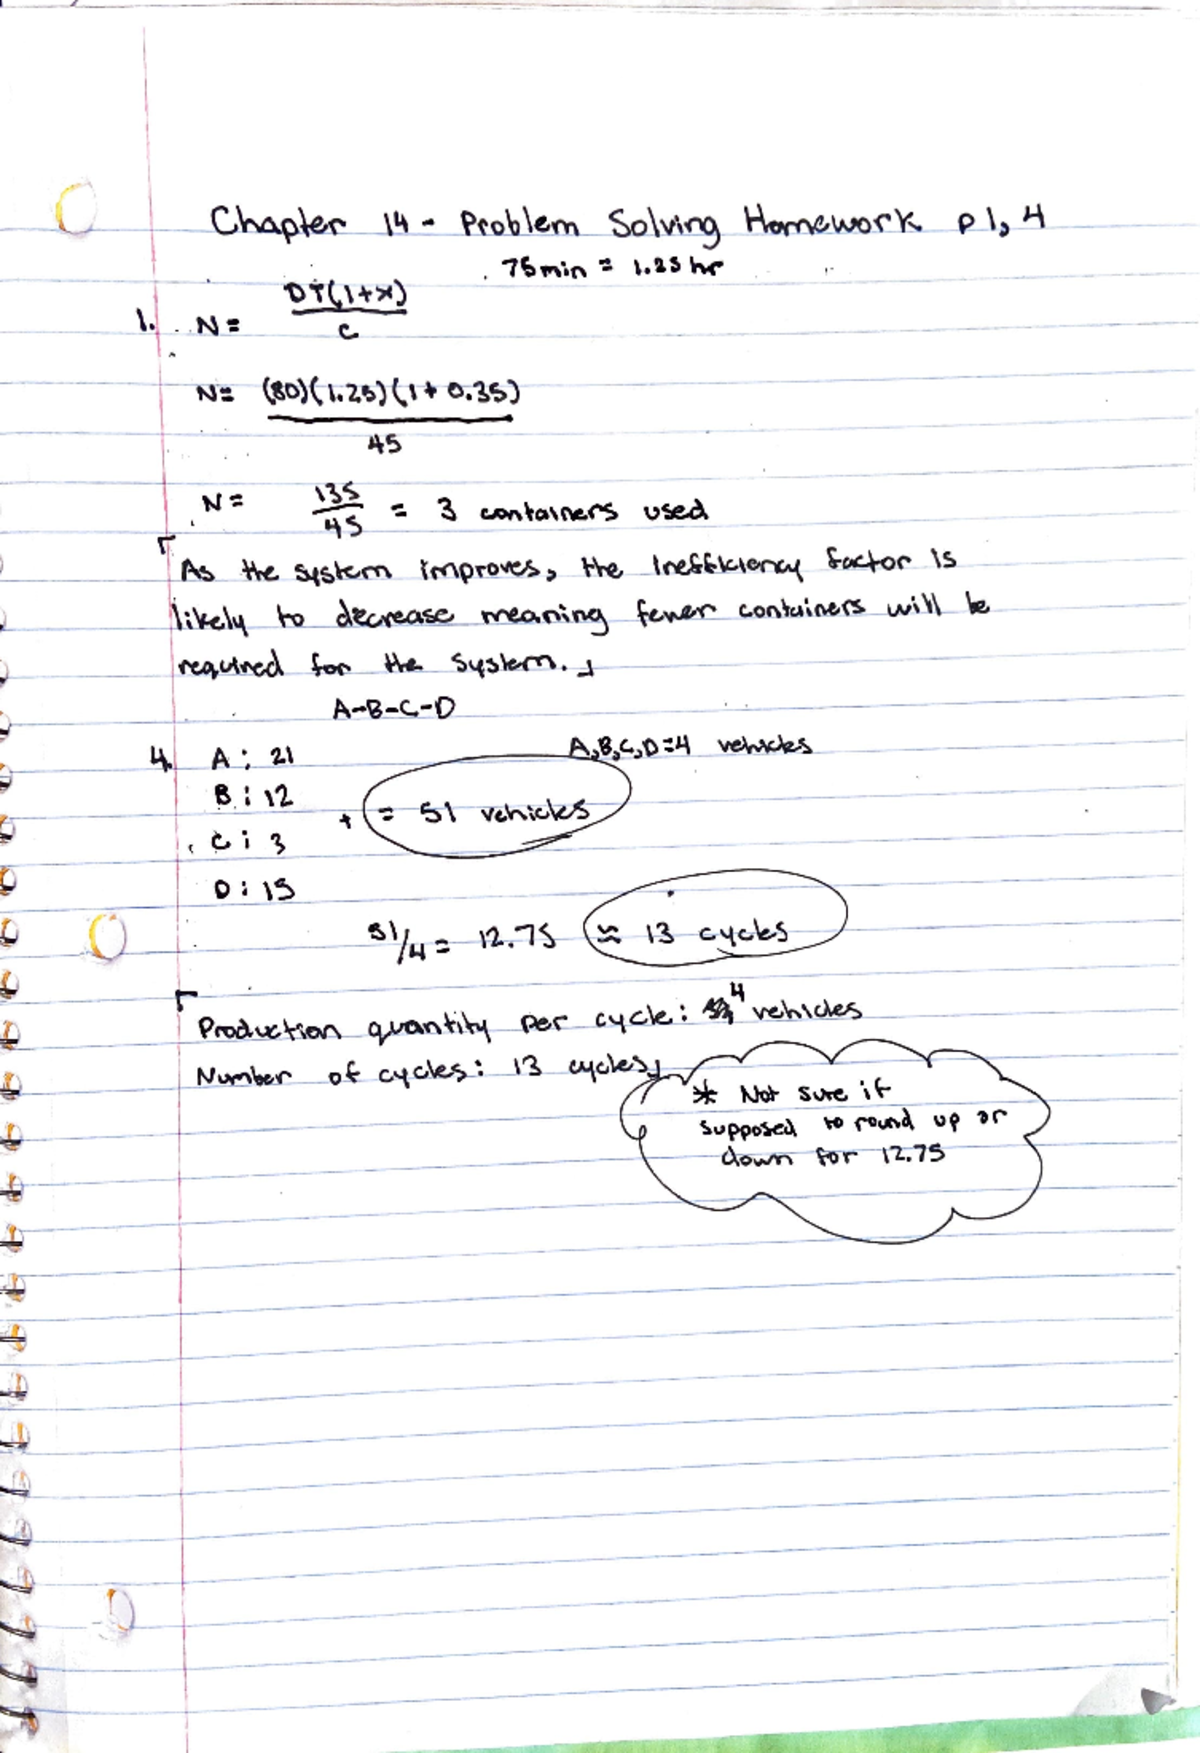 Chapter 14 - Problem Solving Homework p 1, 4
75min = 1.25 hr
1. N = DT(1+x)
C
N = (80)(1.25)(1 + 0.35)
45
N = 135
45 = 3 containers used
As the system improves, the inefficiency factor is
likely to decrease meaning fewer containers will be
required for the system.
A-B-C-D
4. A: 21
A,B,C,D=4 vehicles
B: 12
+ = 51 vehicles
C: 3
D: 15
51/4 = 12.75 ≈ 13 cycles
Production quantity per cycle: 4 vehicles
Number of cycles: 13 cycles
* Not sure if
supposed to round up or
down for 12.75